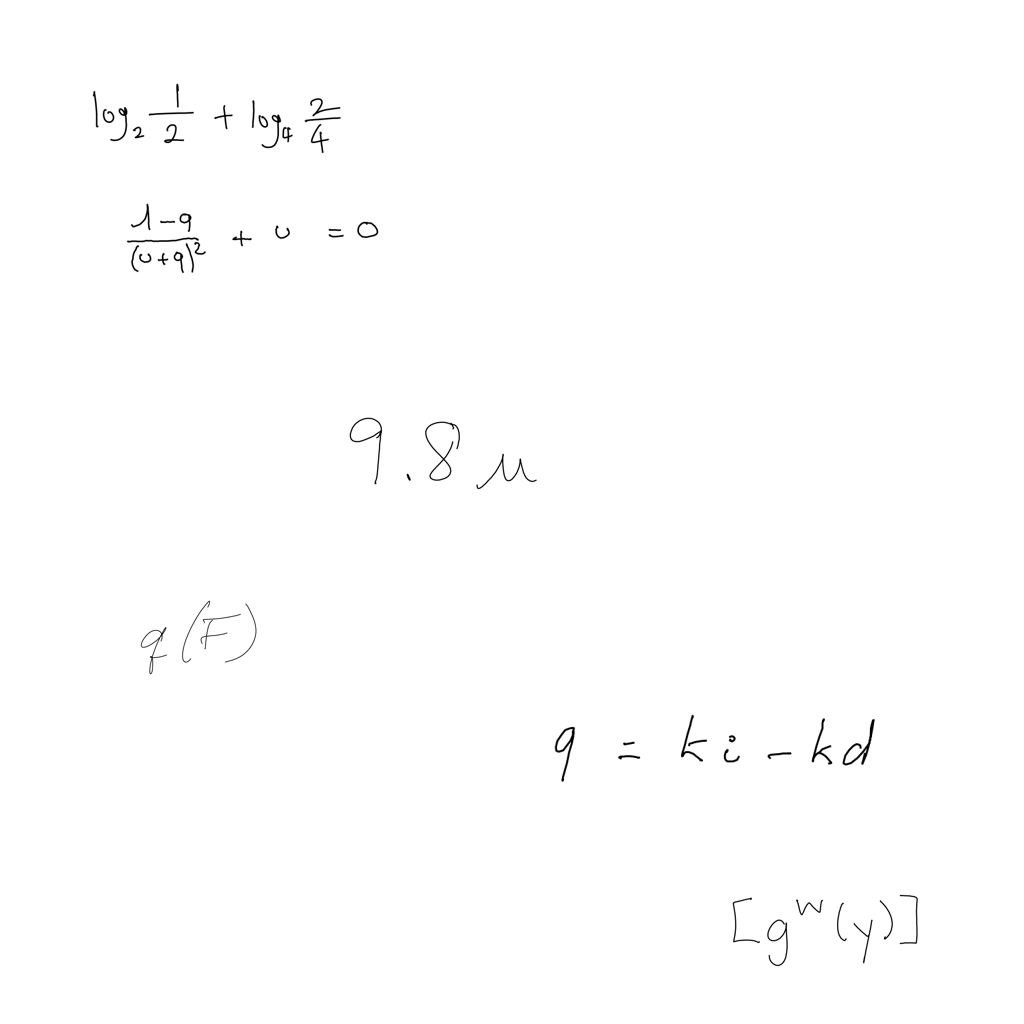 log₂ 1/2 + log₄ 2/4
(1-q)/(u+q)² + u = 0
9.8 μ
q(F)
q = ki - kd
[gʷ(y)]